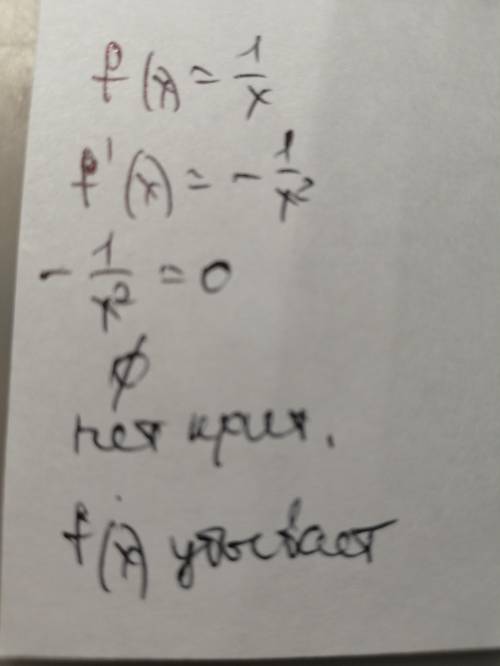 f(x) = 1/x
f'(x) = - 1/x²
- 1/x² = 0
∅
нет крит.
f(x) убывает